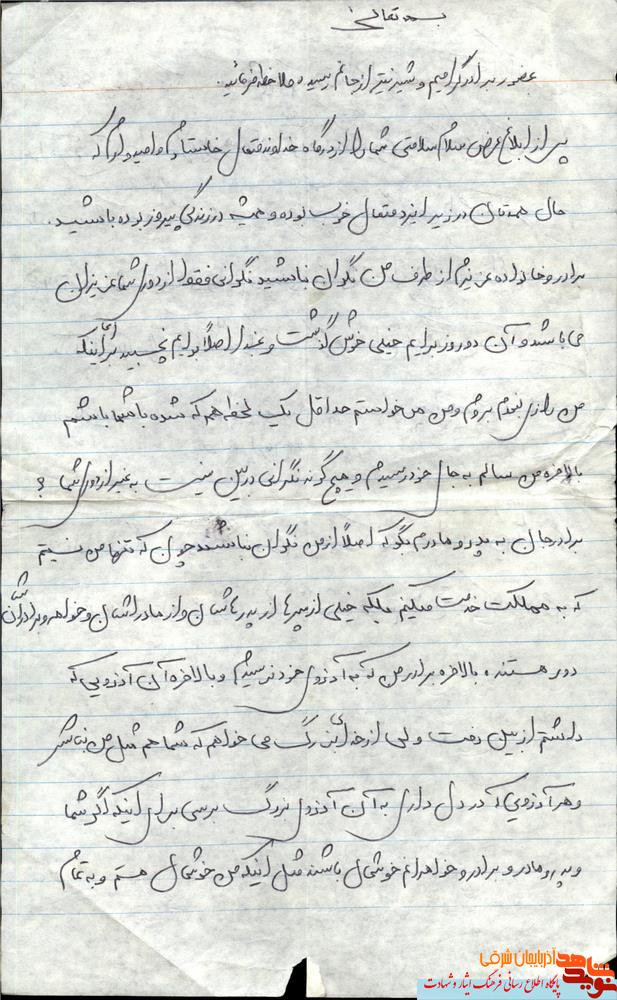 بسمه تعالی
بحضور برادر گرامیم و شیرینتر از جانم رسیده ملاحظه فرمائید.
پس از ابلاغ عرض سلام سلامتی شما را از درگاه خداوند متعال خواستارم و امیدوارم که
حال همه‌تان در زیر ایزد متعال خوب بوده و همیشه در زندگی پیروز بوده باشید.
برادر و خانواده عزیزم از طرف من نگران نباشید نگرانی فقط از دوری شما عزیزان
می باشد و آن دو روز برایم خیلی خوش گذشت و غذا اصلاً برایم نچسبید برای اینکه
من راضی نبودم بروم و من می خواستم حداقل یک لحظه هم که شده با شما باشم
بالاخره من سالم به جای خود رسیدم و هیچ گونه نگرانی در بین نیست به غیر از دوری شما ؟
برادر جان به پدر و مادرم بگو که اصلاً از من نگران نباشند چون که تنها من نیستم
که به مملکت خدمت میکنم بلکه خیلی از پسرها از پدرهاشان و از مادراشان و خواهر و برادرانشان
دور هستند، بالاخره برادر من که به آرزوی خود نرسیدم و بالاخره آن آرزویی که
داشتم از بین رفت ولی از خدای بزرگ می خواهم که شما هم مثل من نباشی
و هر آرزویی که در دل داری به آن آرزوی بزرگ برسی برای اینکه اگر شما
و پدر و مادر و برادر و خواهرانم خوشحال باشند مثل اینکه من خوشحال هستم و به تمام
نوید شاهد آذربایجان شرقی
پایگاه اطلاع رسانی فرهنگ ایثار و شهادت